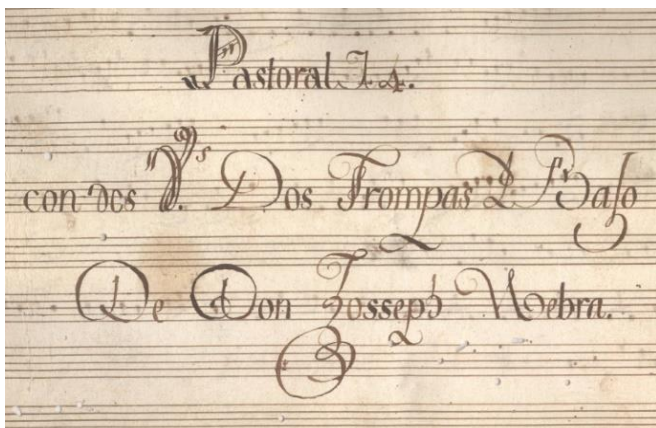 Pastoral J 4.
con dos V.s Dos Trompas Y Baſo
De Don Josseph Nebra.